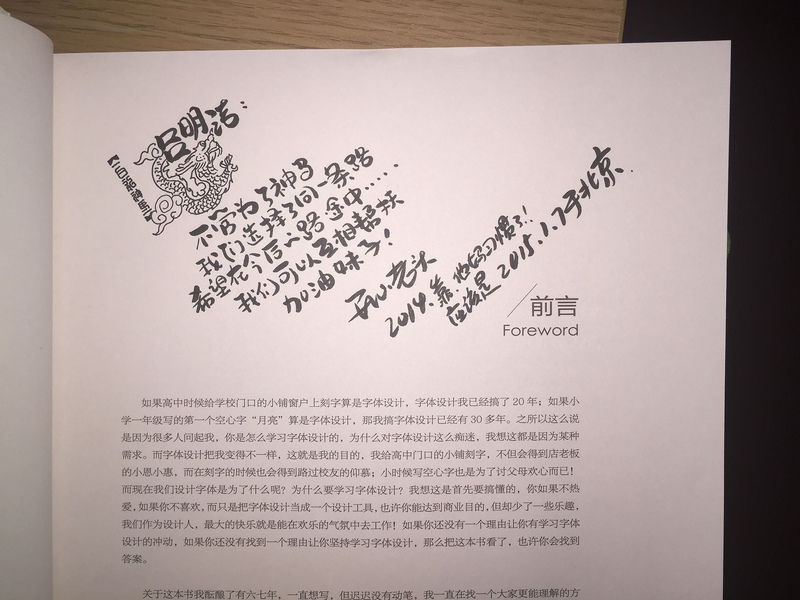 吕明洁：
不管为了神马
我们选择了同一条路
希望在今后的路途中……
我们可以互相帮扶
加油 妹子！
老头
2014.靠.他妈习惯了！
应该是 2015.1.7于北京.
前言
Foreword
如果高中时候给学校门口的小铺窗户上刻字算是字体设计，字体设计我已经搞了 20 年；如果小
学一年级写的第一个空心字“月亮”算是字体设计，那我搞字体设计已经有 30 多年。之所以这么说
是因为很多人问起我，你是怎么学习字体设计的，为什么对字体设计这么痴迷，我想这都是因为某种
需求。而字体设计把我变得不一样，这就是我的目的，我给高中门口的小铺刻字，不但会得到店老板
的小恩小惠，而在刻字的时候也会得到路过校友的仰慕；小时候写空心字也是为了讨父母欢心而已！
而现在我们设计字体是为了什么呢？为什么要学习字体设计？我想这是首先要搞懂的，你如果不热
爱，如果你不喜欢，而只是把字体设计当成一个设计工具，也许你能达到商业目的，但却少了一些乐趣，
我们作为设计人，最大的快乐就是能在欢乐的气氛中去工作！如果你还没有一个理由让你有学习字体
设计的冲动，如果你还没有找到一个理由让你坚持学习字体设计，那么把这本书看了，也许你会找到
答案。
关于这本书我酝酿了有六七年，一直想写，但迟迟没有动笔，我一直在找一个大家更能理解的方